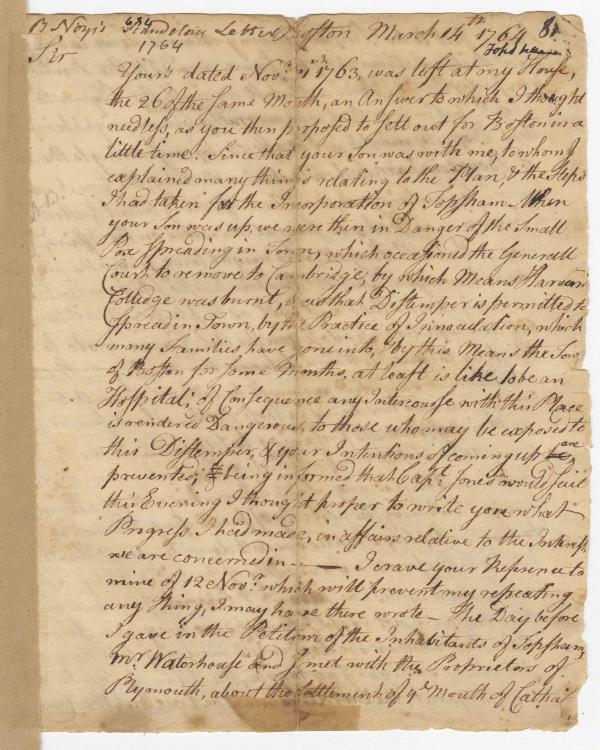 B Noyes Scandelous Letter Boston March 14th 1764 81
1764
Sir
Yours dated Novr. 1763, was left at my House,
the 26 of the same Month, an Answer to which I thought
needless, as you then proposed to sett out for Boston in a
little time. Since that your Son was with me, to whom I
explained many things relating to the Plan, & the Steps
I had taken for the Incorporation of Topsham When
your Son was up, we were then in Danger of the Small
Pox Spreading in Town, which occasioned the Generall
Court to remove to Cambridge, by which Means Harvard
Colledge was burnt, & as that Distemper is permitted to
Spread in Town, by the Practice of Innoculation, which
many Families, have gone into, & by this Means the Town
of Boston for Some Months, at least is like to be an
Hospital; of Consequence any Intercourse with this Place
is rendered Dangerous, to those who may be exposed to
this Distemper, & your Intentions of coming up are
prevented; being informed that Capt. Jones would Sail
this Evening I thought proper to write you what
Progress I had made, in affairs relative to the Interest,
we are concerned in — I crave your Reference to
mine of 12 Novr. which will prevent my repeating
any thing, I may have there wrote — The Day before
I gave in the Petition of the Inhabitants of Topsham,
Mr. Waterhouse and I met with the Proprietors of
Plymouth, about the Settlement of ye. Mouth of Cathat